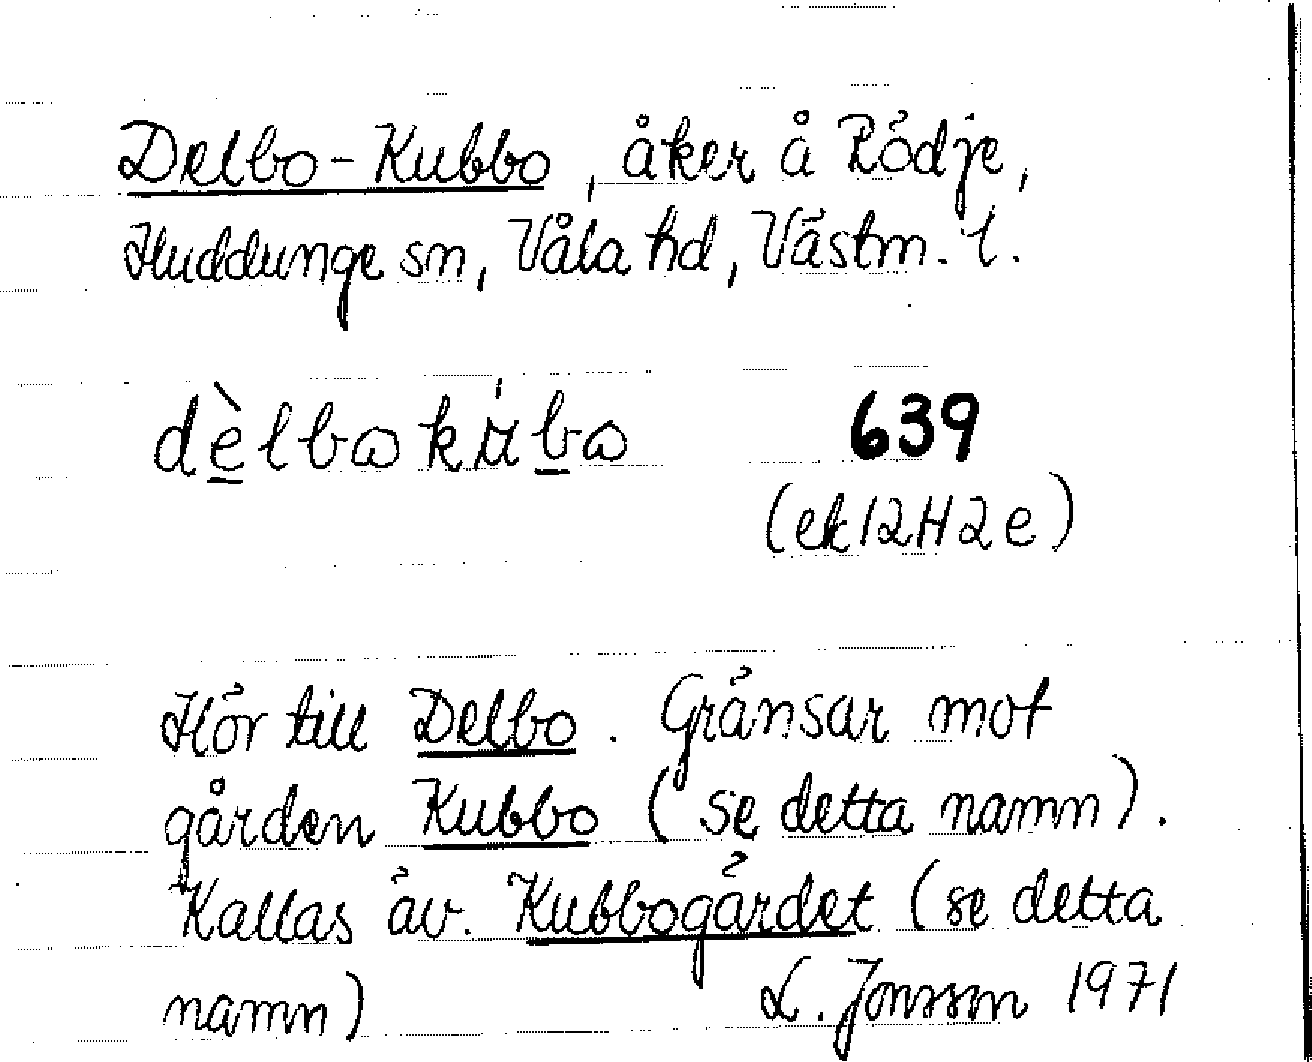 Delbo-Kubbo, åker å Rödje,
Huddunge sn, Våla hd, Västm. l.
dèlbωkúbω 639
(ek 12H2e)
Hör till Delbo. Gränsar mot
gården Kubbo (se detta namn).
Kallas äv. Kubbogärdet (se detta
namn) L. Jonsson 1971